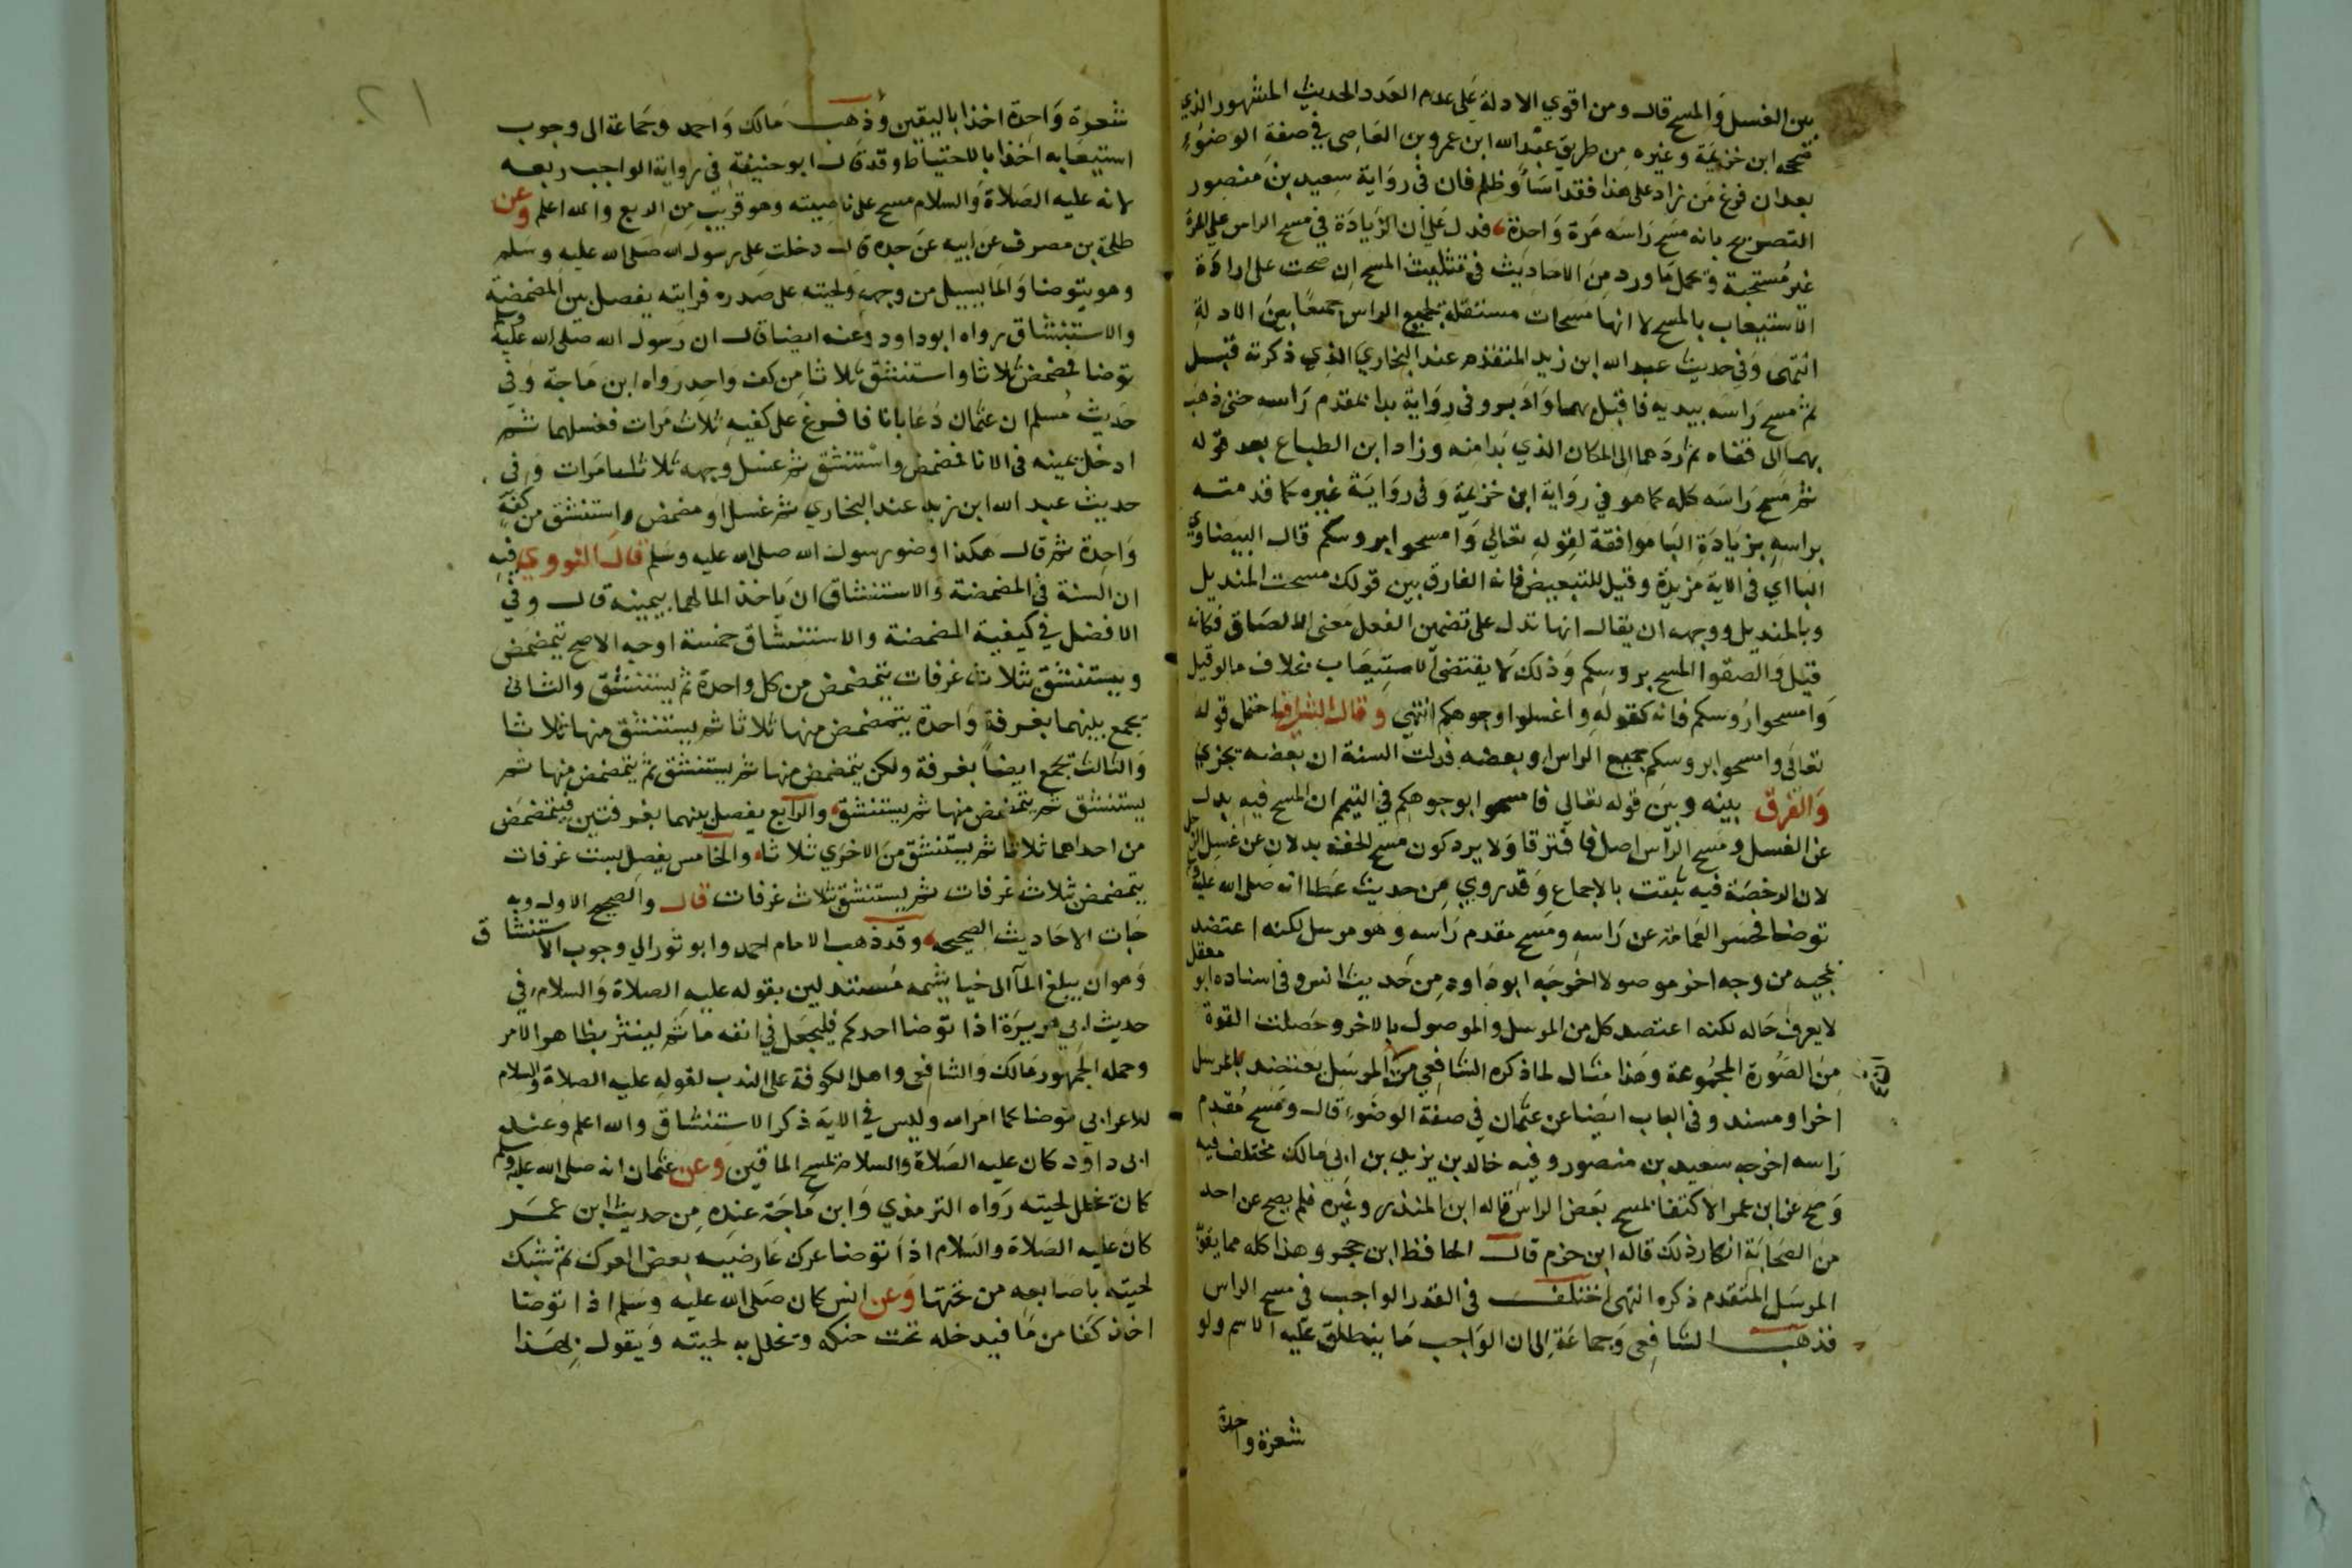 بين الغسل والمسح قال ومن اقوي الادلة على عدم العدد الحديث المشهور الذي
صححه ابن خزيمة وغيره من طريق عبد الله ابن عمرو بن العاصي في صفة الوضوء
بعد ان فرغ من زاد على هذا فقد اساء وظلم فان في رواية سعيد بن منصور
التصريح بانه مسح راسه مرة واحدة فدل على ان الزيادة في مسح الراس على المرة
غير مستحبة وتحمل ما ورد من الاحاديث في تثليث المسح ان صحت على ارادة
الاستيعاب بالمسح لا انها مسحات مستقلة لجميع الراس جمعا بين الادلة
انتهى وفي حديث عبد الله ابن زيد المتقدم عند البخاري الذي ذكرته قبل
ثم مسح راسه بيديه فاقبل بهما وادبر وفي رواية بدا بمقدم راسه حتى ذهب
بهما الى قفاه ثم ردهما الى المكان الذي بدا منه وزاد ابن الطباع بعد قوله
ثم مسح راسه كله كما هو في رواية ابن خزيمة وفي رواية غيره كما قدمته
براسه بزيادة البا موافقة لقوله تعالي وامسحوا بروسكم قال البيضاوي
البا اي في الاية مزيدة وقيل للتبعيض فانه الفارق بين قولك مسحت المنديل
وبالمنديل ووجهه ان يقال انها تدل على تضمين الفعل معنى الالصاق فكانه
قيل والصقوا المسح بروسكم وذلك لا يقتضي الاستيعاب بخلاف ما لو قيل
وامسحوا روسكم فانه كقوله واغسلوا وجوهكم انتهي وقال الشافعي احتمل قوله
تعالى وامسحوا بروسكم جميع الراس او بعضه فدلت السنة ان بعضه يجزي
والفرق بينه وبين قوله تعالي فامسحوا بوجوهكم في التيمم ان المسح فيه بدل
عن الغسل ومسح الراس اصل فافترقا ولا يرد كون مسح الخف بدلا عن غسل الرجل
لان الرخصة فيه ثبتت بالاجماع وقد روي من حديث عطا انه صلى الله عليه وسلم
توضا فحسر العمامة عن راسه ومسح مقدم راسه وهو مرسل لكنه اعتضد
بمجيه من وجه اخر موصولا اخرجه ابو داود من حديث انس وفي اسناده ابو معقل
لا يعرف حاله لكنه اعتضد كل من المرسل والموصول بالاخر وحصلت القوة
من الصورة المجموعة وهذا مثال لما ذكره الشافعي من ان المرسل يعتضد بالمرسل
اخر او مسند وفي الباب ايضا عن عثمان في صفة الوضوء قال ومسح مقدم
راسه اخرجه سعيد بن منصور وفيه خالد بن يزيد بن ابي مالك مختلف فيه
وصح عن ابن عمر الاكتفا بمسح بعض الراس قاله ابن المنذر وغيره فلم يصح عن احد
من الصحابة انكار ذلك قاله ابن حزم قال الحافظ ابن حجر وهذا كله مما يقوي
المرسل المتقدم ذكره انتهى اختلف في القدر الواجب في مسح الراس
فذهب الشافعي وجماعة الى ان الواجب ما ينطلق عليه الاسم ولو
شعرة واحدة
شعرة واحدة اخذا باليقين وذهب مالك واحمد وجماعة الى وجوب
استيعابه اخذا بالاحتياط وقد قال ابو حنيفة في رواية الواجب ربعه
لانه عليه الصلاة والسلام مسح على ناصيته وهو قريب من الربع والله اعلم وعن
طلحة بن مصرف عن ابيه عن جده قال دخلت على رسول الله صلى الله عليه وسلم
وهو يتوضا والما يسيل من وجهه ولحيته على صدره فرايته يفصل بين المضمضة
والاستنشاق رواه ابو داود وعنه ايضا قال ان رسول الله صلى الله عليه وسلم
توضا فمضمض ثلاثا واستنشق ثلاثا من كف واحد رواه ابن ماجة وفي
حديث مسلم ان عثمان دعا بانا فافرغ على كفيه ثلاث مرات فغسلهما ثم
ادخل يمينه في الانا فمضمض واستنشق ثم غسل وجهه ثلاث مرات وفي
حديث عبد الله ابن زيد عند البخاري ثم غسل او مضمض واستنشق من كفة
واحدة ثم قال هكذا وضو رسول الله صلى الله عليه وسلم قال النووي فيه
ان السنة في المضمضة والاستنشاق ان ياخذ الما لهما بيمينه قال وفي
الافضل في كيفية المضمضة والاستنشاق خمسة اوجه الاصح يتمضمض
ويستنشق بثلاث غرفات يتمضمض من كل واحدة ثم يستنشق والثاني
يجمع بينهما بغرفة واحدة يتمضمض منها ثلاثا ثم يستنشق منها ثلاثا
والثالث يجمع ايضا بغرفة ولكن يتمضمض منها ثم يستنشق ثم يتمضمض منها ثم
يستنشق ثم يتمضمض منها ثم يستنشق والرابع يفصل بينهما بغرفتين فيتمضمض
من احداهما ثلاثا ثم يستنشق من الاخري ثلاثا والخامس يفصل بست غرفات
يتمضمض بثلاث غرفات ثم يستنشق بثلاث غرفات قال والصحيح الاول وبه
جات الاحاديث الصحيحة وقد ذهب الامام احمد وابو ثور الي وجوب الاستنشاق
وهو ان يبلغ الما الى خياشيمه مستدلين بقوله عليه الصلاة والسلام في
حديث ابي هريرة اذا توضا احدكم فليجعل في انفه ما ثم لينتثر بظاهر الامر
وحمله الجمهور مالك والشافعي واهل الكوفة على الندب لقوله عليه الصلاة والسلام
للاعرابي توضا كما امر الله وليس في الاية ذكر الاستنشاق والله اعلم وعند
ابي داود كان عليه الصلاة والسلام يمسح الماقين وعن عثمان انه صلى الله عليه وسلم
كان يخلل لحيته رواه الترمذي وابن ماجة عنده من حديث ابن عمر
كان عليه الصلاة والسلام اذا توضا عرك عارضيه بعض العرك ثم شبك
لحيته باصابعه من تحتها وعن انس كان صلى الله عليه وسلم اذا توضا
اخذ كفا من ما فيدخله تحت حنكه ويخلل به لحيته ويقول بهذا